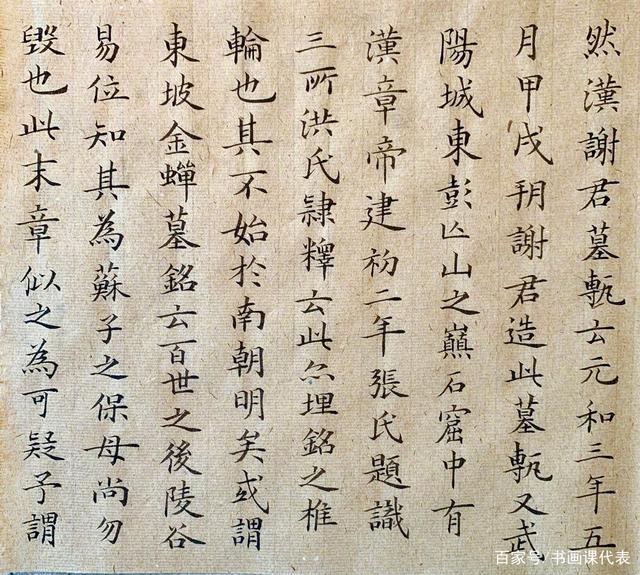 然漢謝君墓甎云元和三年五
月甲戌朔謝君造此墓甎又武
陽城東彭亾山之巔石窟中有
漢章帝建初二年張氏題識
三所洪氏隸釋云此亦埋銘之椎
輪也其不始於南朝明矣或謂
東坡金蟬墓銘云百世之後陵谷
易位知其為蘇子之保母尚勿
毀也此末章似之為可疑予謂
百家号/书画课代表